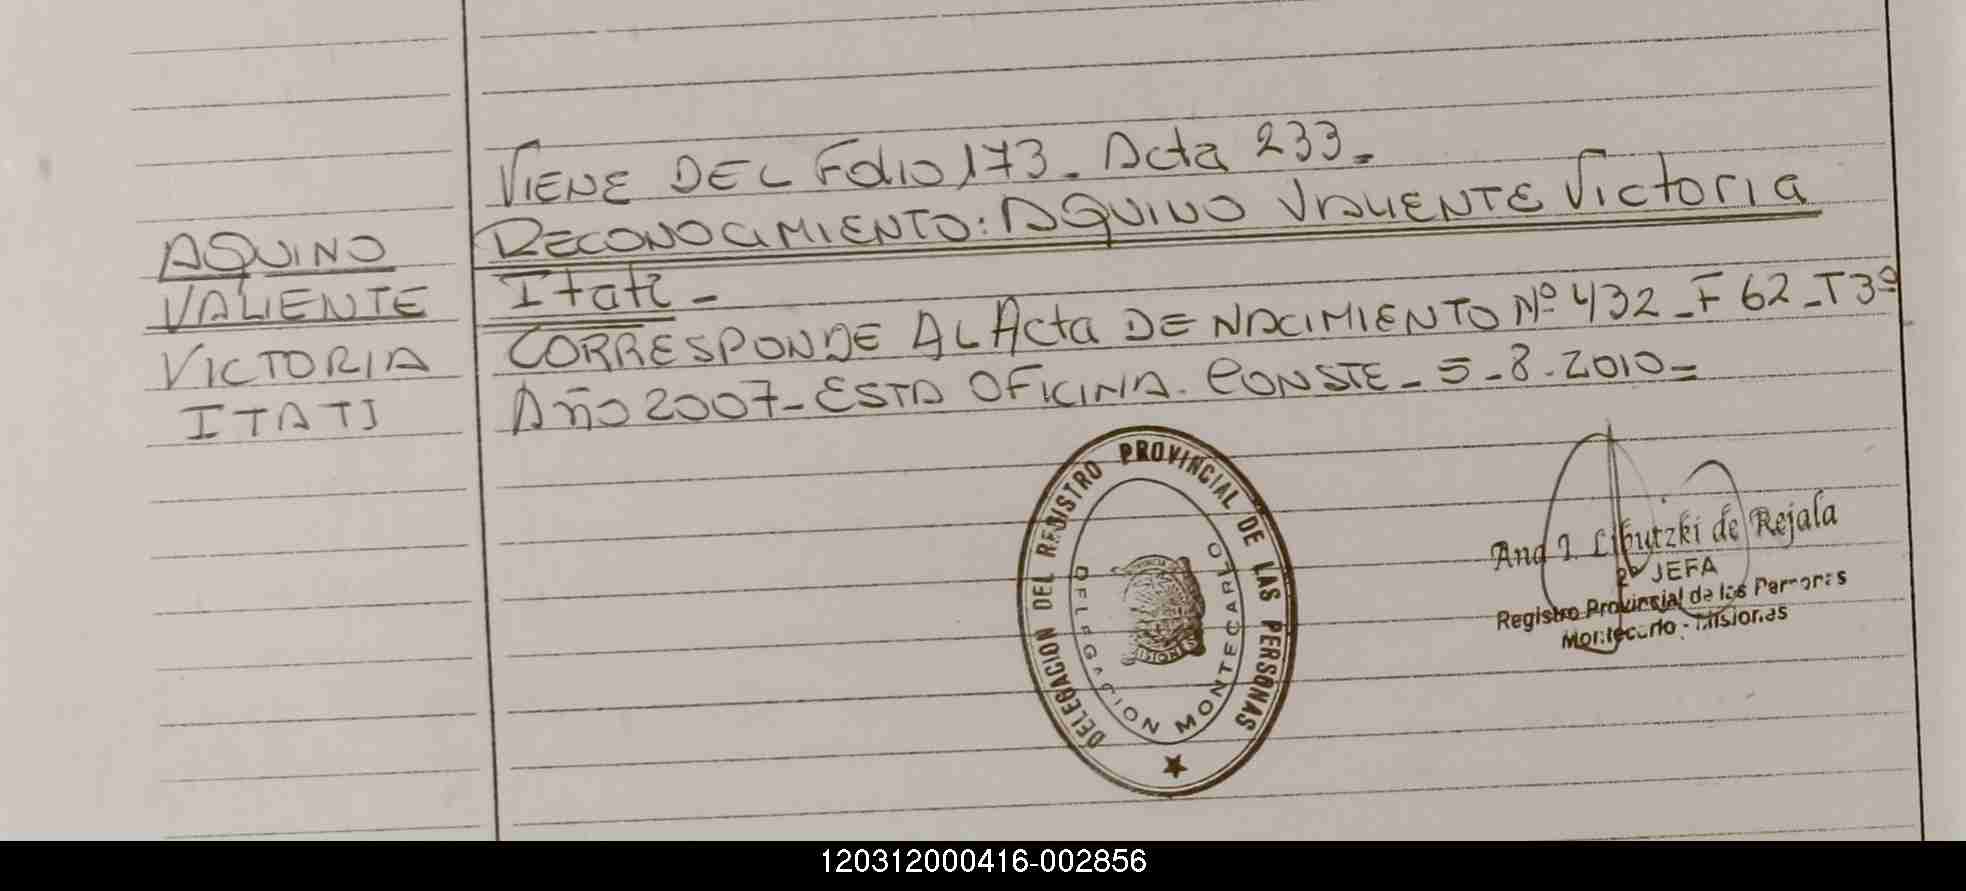 VIENE DEL Folio 173_ Acta 233_
AQUINO
VALIENTE
VICTORIA
ITATI
RECONOCIMIENTO: AQUINO VALIENTE Victoria
Itati_
CORRESPONDE AL Acta DE NACIMIENTO Nº 432_F 62_T3º
Año 2007_ESTA OFICINA. CONSTE_5_8.2010_
DELEGACION DEL REGISTRO PROVINCIAL DE LAS PERSONAS
DELEGACION MONTECARLO
MISIONES
Ana I. Libutzki de Rejala
JEFA
Registro Provincial de las Personas
Montecarlo - Misiones
120312000416-002856